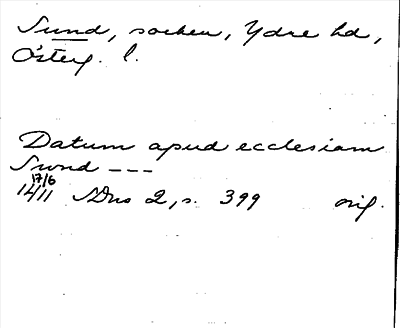 Sund, socken, Ydre hd,
Österg. l.
Datum apud ecclesiam
Swnd ---
17/6
1411 SDns 2, s. 399 orig.